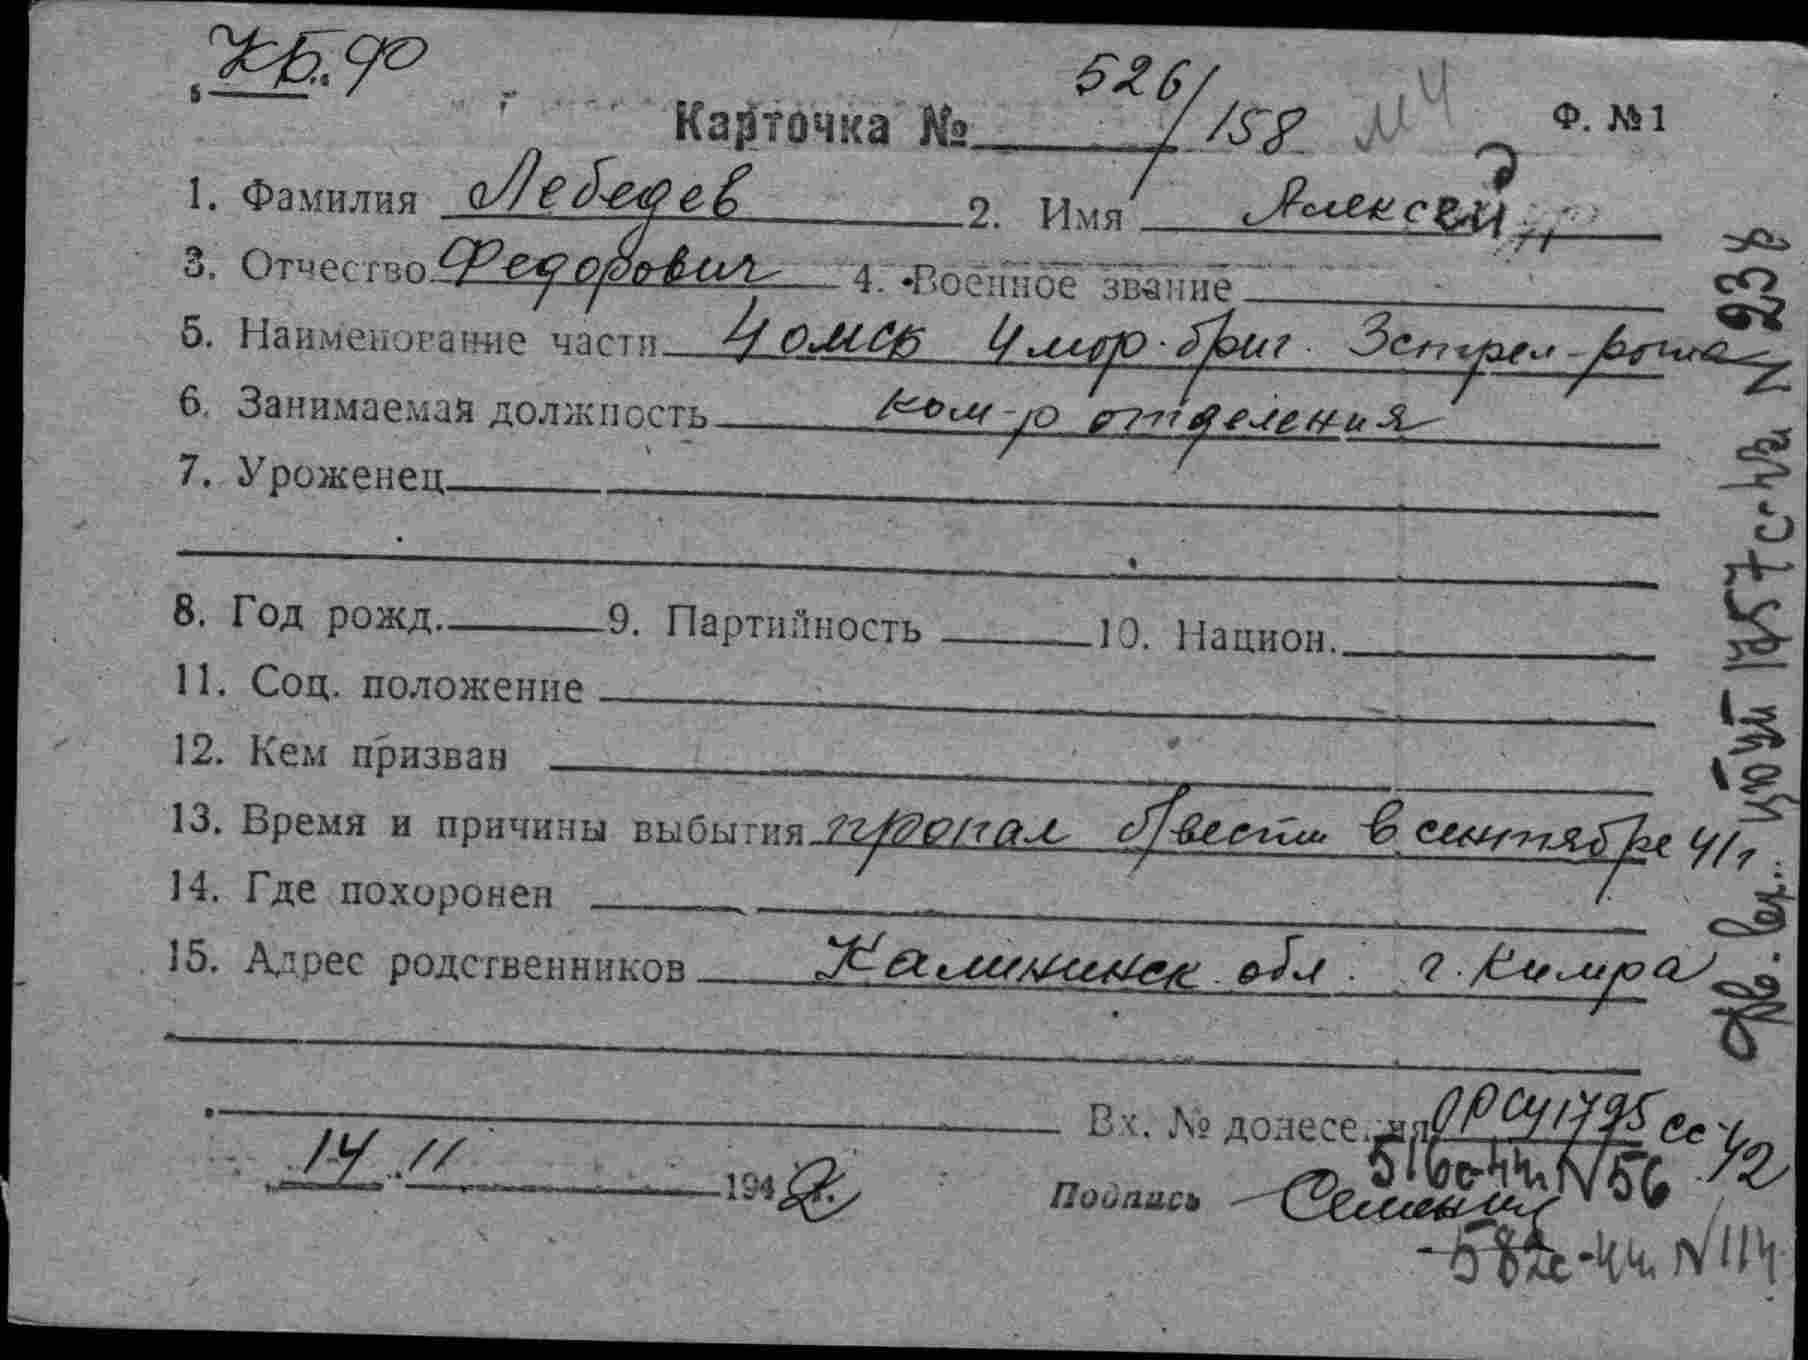 КБФ
Карточка № 526/158 Ф. №1
1. Фамилия Лебедев 2. Имя Алексей
3. Отчество Федорович 4. Военное звание
5. Наименование части 4 омсб 4 мор. бриг. 3 стрел-рота
6. Занимаемая должность ком-р отделения
7. Уроженец
8. Год рожд. 9. Партийность 10. Национ.
11. Соц. положение
12. Кем призван
13. Время и причины выбытия пропал б/вести в сентябре 41 г
14. Где похоронен
15. Адрес родственников Калининск. обл. г. Кимра
Вх. № донесения ОРСУ 1795 сс-42
14 11 1942 г.
516с-44 N 56
Подпись
582с-44 N 114
N 238